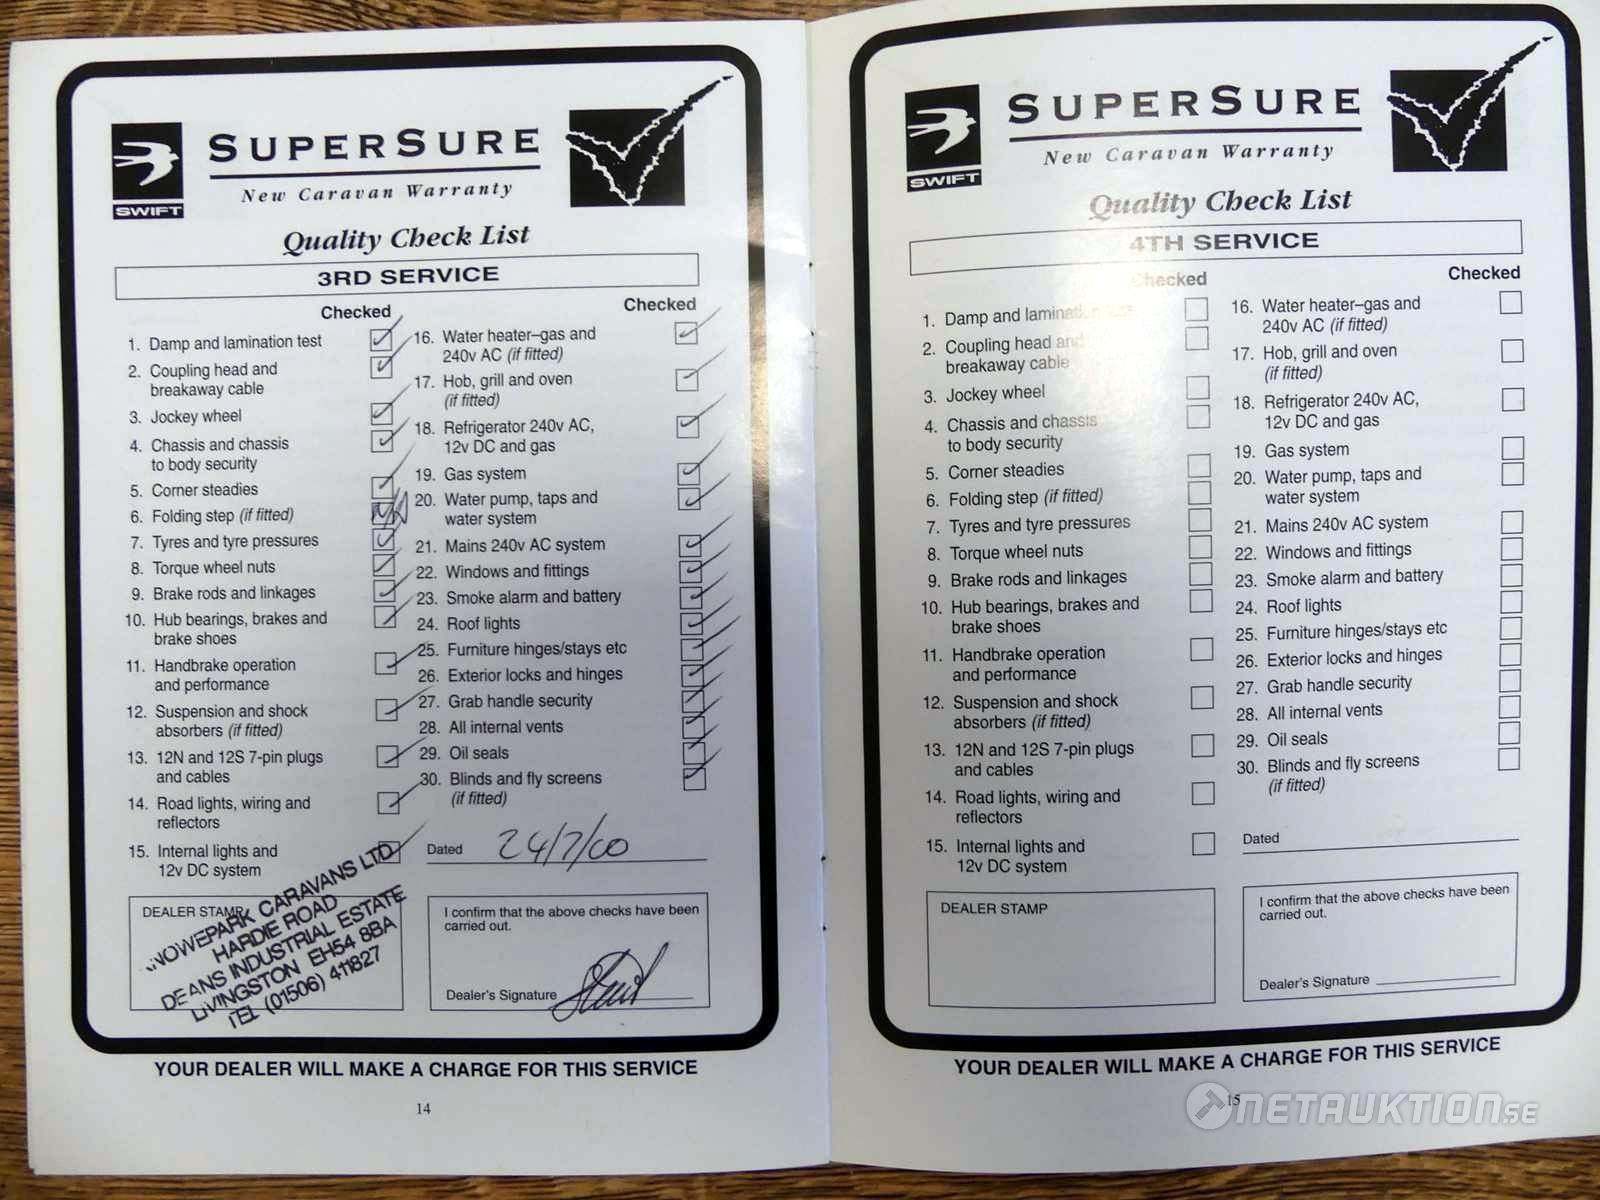 SWIFT
SUPERSURE
New Caravan Warranty
Quality Check List
3RD SERVICE
Checked
1. Damp and lamination test
2. Coupling head and
breakaway cable
3. Jockey wheel
4. Chassis and chassis
to body security
5. Corner steadies
6. Folding step (if fitted)
7. Tyres and tyre pressures
8. Torque wheel nuts
9. Brake rods and linkages
10. Hub bearings, brakes and
brake shoes
11. Handbrake operation
and performance
12. Suspension and shock
absorbers (if fitted)
13. 12N and 12S 7-pin plugs
and cables
14. Road lights, wiring and
reflectors
15. Internal lights and
12v DC system
Checked
16. Water heater–gas and
240v AC (if fitted)
17. Hob, grill and oven
(if fitted)
18. Refrigerator 240v AC,
12v DC and gas
19. Gas system
20. Water pump, taps and
water system
21. Mains 240v AC system
22. Windows and fittings
23. Smoke alarm and battery
24. Roof lights
25. Furniture hinges/stays etc
26. Exterior locks and hinges
27. Grab handle security
28. All internal vents
29. Oil seals
30. Blinds and fly screens
(if fitted)
Dated 24/7/00
DEALER STAMP
KNOWEPARK CARAVANS LTD
HARDIE ROAD
DEANS INDUSTRIAL ESTATE
LIVINGSTON EH54 8BA
TEL (01506) 411827
I confirm that the above checks have been
carried out.
Dealer's Signature
YOUR DEALER WILL MAKE A CHARGE FOR THIS SERVICE
14
SWIFT
SUPERSURE
New Caravan Warranty
Quality Check List
4TH SERVICE
Checked
1. Damp and lamination
2. Coupling head and
breakaway cable
3. Jockey wheel
4. Chassis and chassis
to body security
5. Corner steadies
6. Folding step (if fitted)
7. Tyres and tyre pressures
8. Torque wheel nuts
9. Brake rods and linkages
10. Hub bearings, brakes and
brake shoes
11. Handbrake operation
and performance
12. Suspension and shock
absorbers (if fitted)
13. 12N and 12S 7-pin plugs
and cables
14. Road lights, wiring and
reflectors
15. Internal lights and
12v DC system
Checked
16. Water heater–gas and
240v AC (if fitted)
17. Hob, grill and oven
(if fitted)
18. Refrigerator 240v AC,
12v DC and gas
19. Gas system
20. Water pump, taps and
water system
21. Mains 240v AC system
22. Windows and fittings
23. Smoke alarm and battery
24. Roof lights
25. Furniture hinges/stays etc
26. Exterior locks and hinges
27. Grab handle security
28. All internal vents
29. Oil seals
30. Blinds and fly screens
(if fitted)
Dated
DEALER STAMP
I confirm that the above checks have been
carried out.
Dealer's Signature
YOUR DEALER WILL MAKE A CHARGE FOR THIS SERVICE
15
NETAUKTION.SE